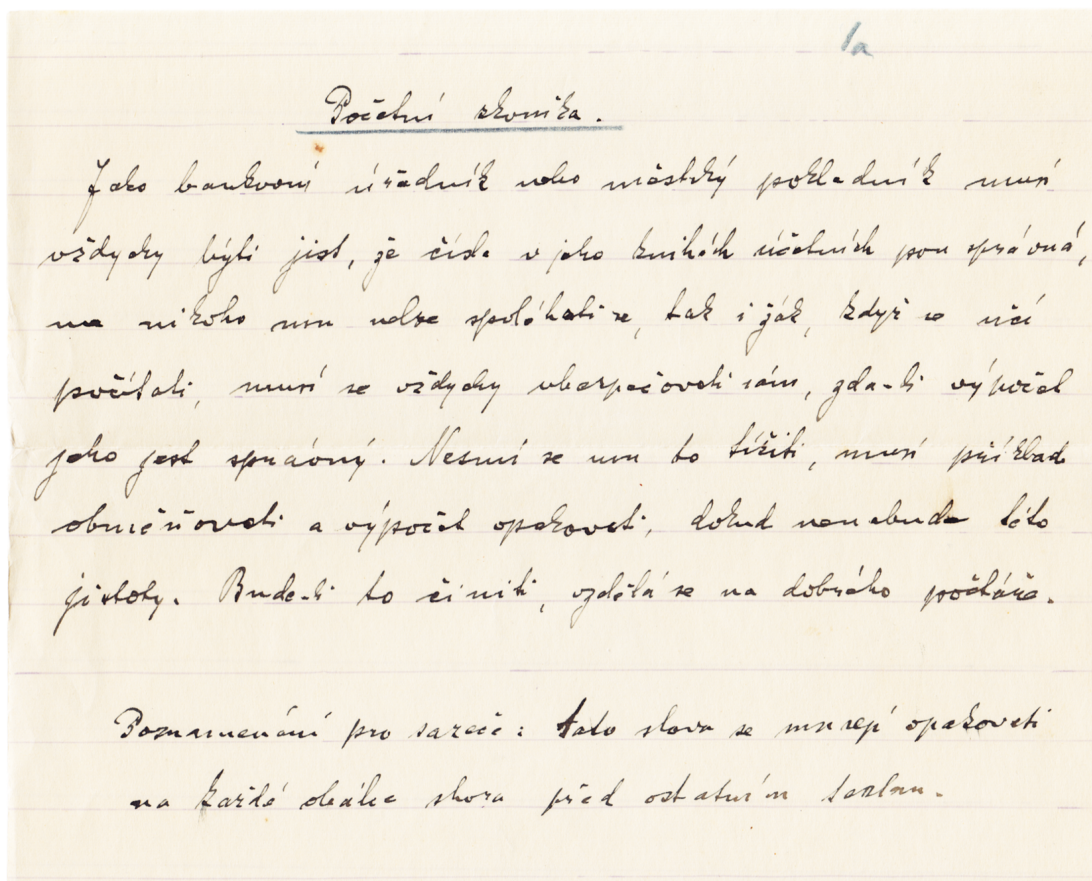 1a
Početní zkouška.
Jako bankovní úředník nebo městský pokladník musí
vždycky býti jist, že čísla v jeho knihách účetních jsou správná,
na nikoho mu nelze spoléhati se, tak i žák, když se učí
počítati, musí se vždycky ubezpečovati sám, zda-li výpočet
jeho jest správný. Nesmí se mu to tížiti, musí příklad
obměňovati a výpočet opakovati, dokud nenabude této
jistoty. Bude-li to činiti, vzdělá se na dobrého počtáře.
Poznamenání pro sazeče: tato slova se musejí opakovati
na každé obálce shora před ostatním textem.